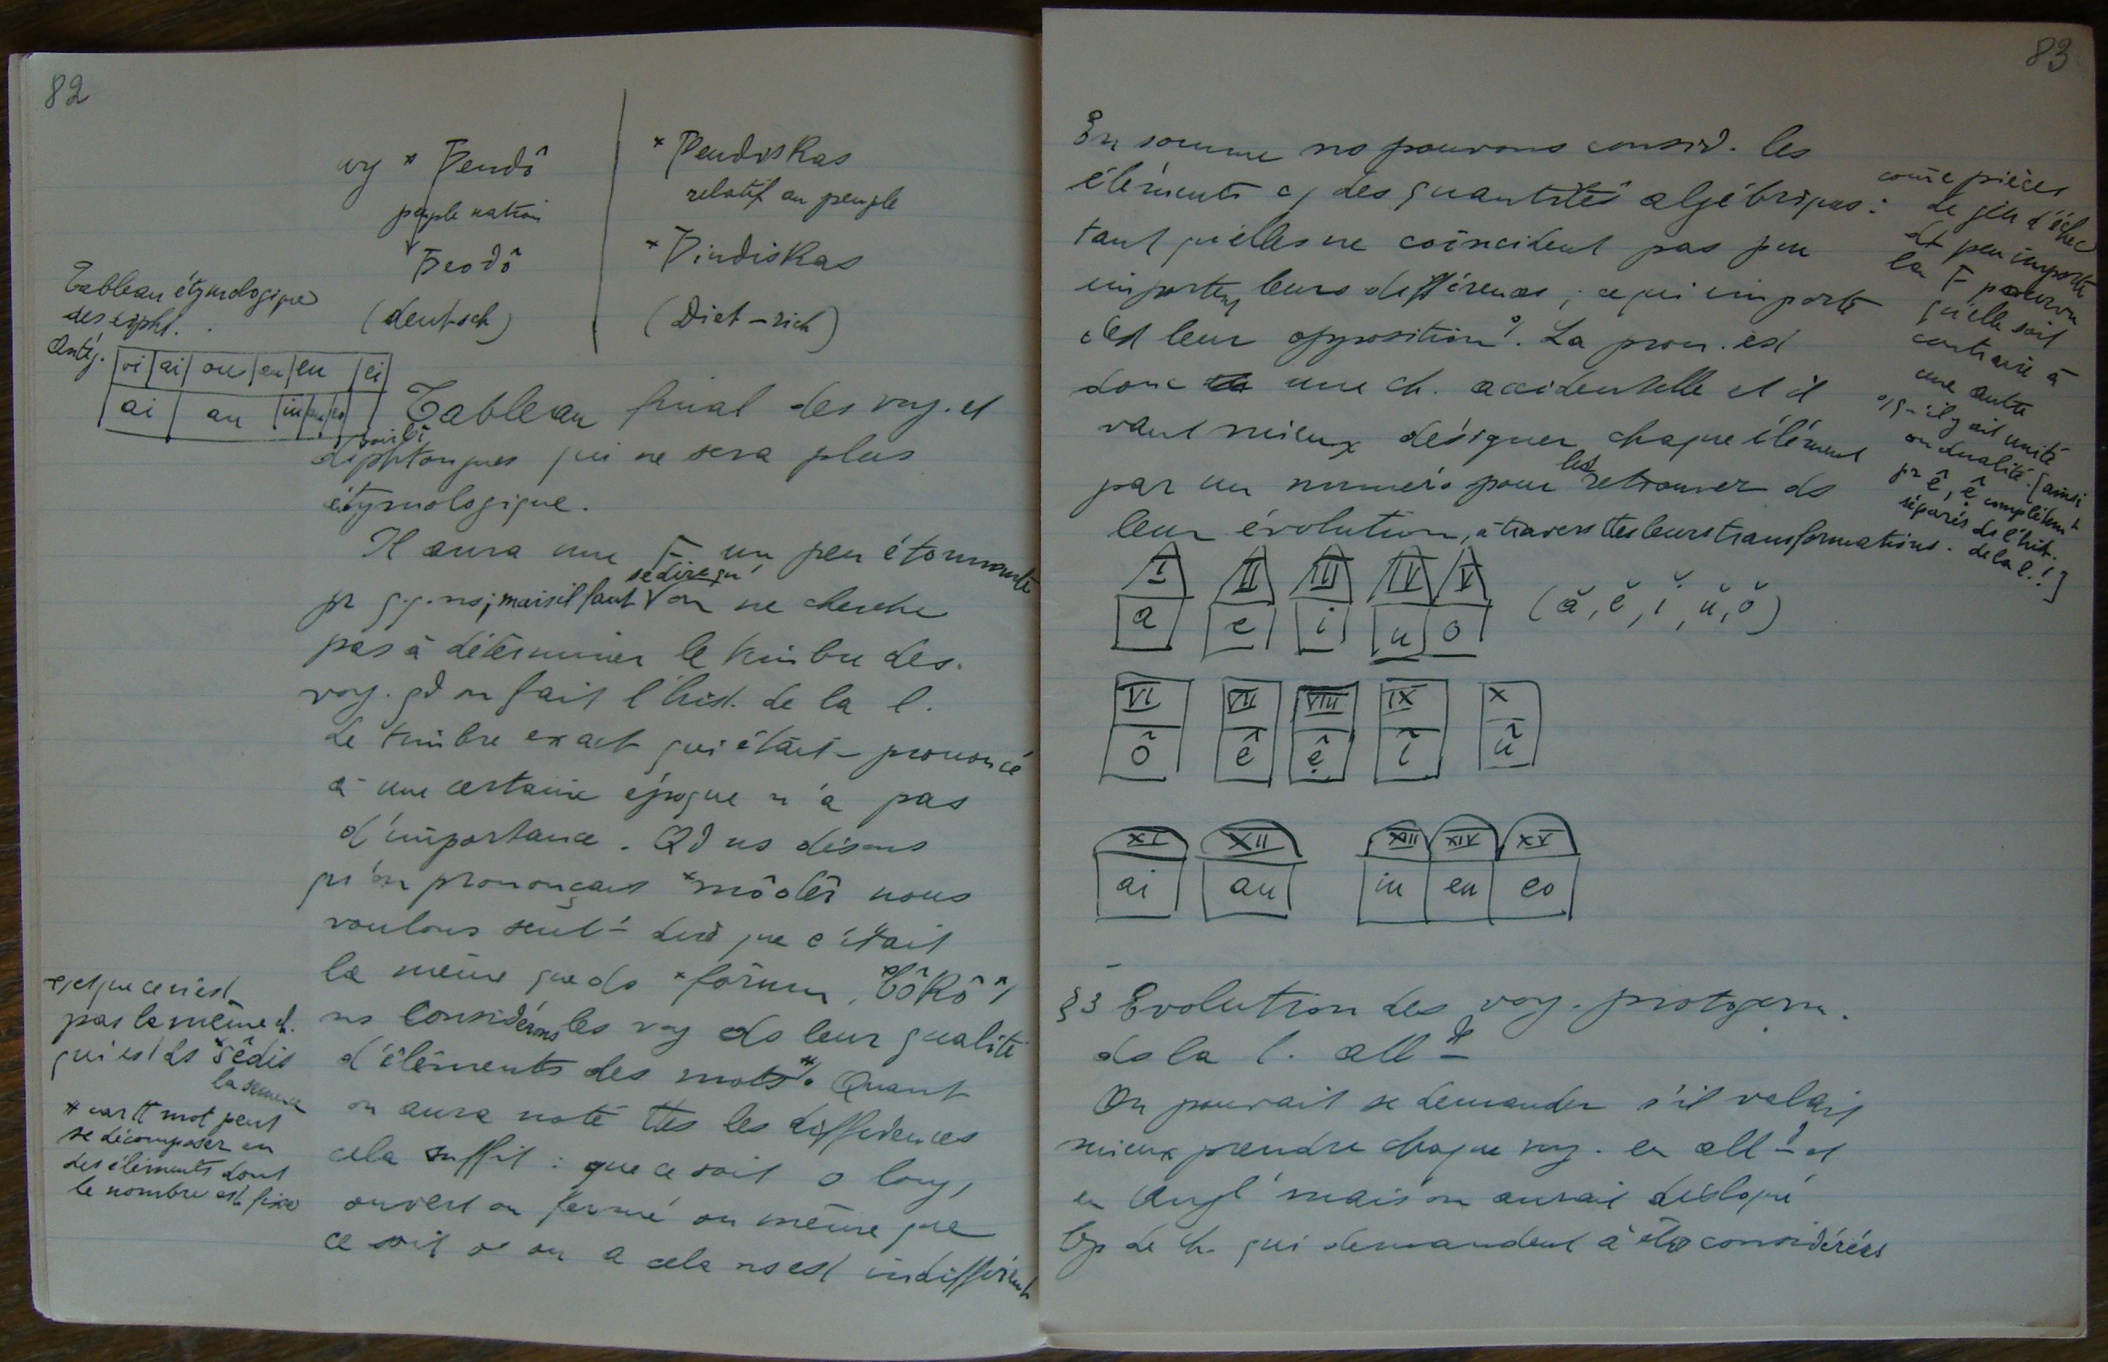 82
cy * Þeudô
peuple nation
Þeodô
(deutsch)
* Þeudiskas
relatif au peuple
* Þiudiskas
(Diet-rich)
Tableau étymologique
des dipht.
Antég.
oi ai ou eu ei
ai au iu eu eo
Tableau final des voy. et
diphtongues qui ne sera plus
étymologique.
Il aura une F un peu étonnante
pr ; mais il faut se dire qu'on ne cherche
pas à déterminer le timbre des
voy. qd on fait l'hist. de la l.
Le timbre exact qui était prononcé
à une certaine époque n'a pas
d'importance. Qd ns disons
qu'on prononçait *môdêr nous
voulons seult dire que c'était
le même que ds *fôrum, bôkô
ns considérons les voy ds leur qualité
d'éléments des mots*. Quant
on aura noté ttes les différences
cela suffit : que ce soit o long,
ouvert ou fermé ou même que
ce soit o ou a cela ns est indifférent
et que ce n'est
pas le même ê
qui est ds *sêdis
la semence
* car tt mot peut
se décomposer en
des éléments dont
le nombre est fixe
83
En somme ns pouvons consid. les
éléments cj des quantités algébriques :
tant qu'elles ne coïncident pas peu
importent leurs différences ; ce qui importe
c'est leur opposition. La pron. est
donc une ch. accidentelle et il
vaut mieux désigner chaque élément
par un numéro pour les retrouver ds
leur évolution, à travers ttes leurs transformations.
come pièces
de jeu d'échec
dt peu importe
la F pourvu
qu'elle soit
contraire à
une autre
qu'il y ait unité
ou dualité. [ainsi
pr ê, ệ complètemt
séparés ds l'hist.
de la l.!]
I II III IV V
a e i u o
(ă, ĕ, ĭ, ŭ, ŏ)
VI VII VIII IX X
ô ê ệ î û
XI XII XIII XIV XV
ai au iu eu eo
§3 Evolution des voy. protogerm.
ds la l. allde
On pourrait se demander s'il valait
mieux prendre chaque voy. en alld et
en Angl mais on aurait disloqué
trop de ch. qui demandent à être considérées